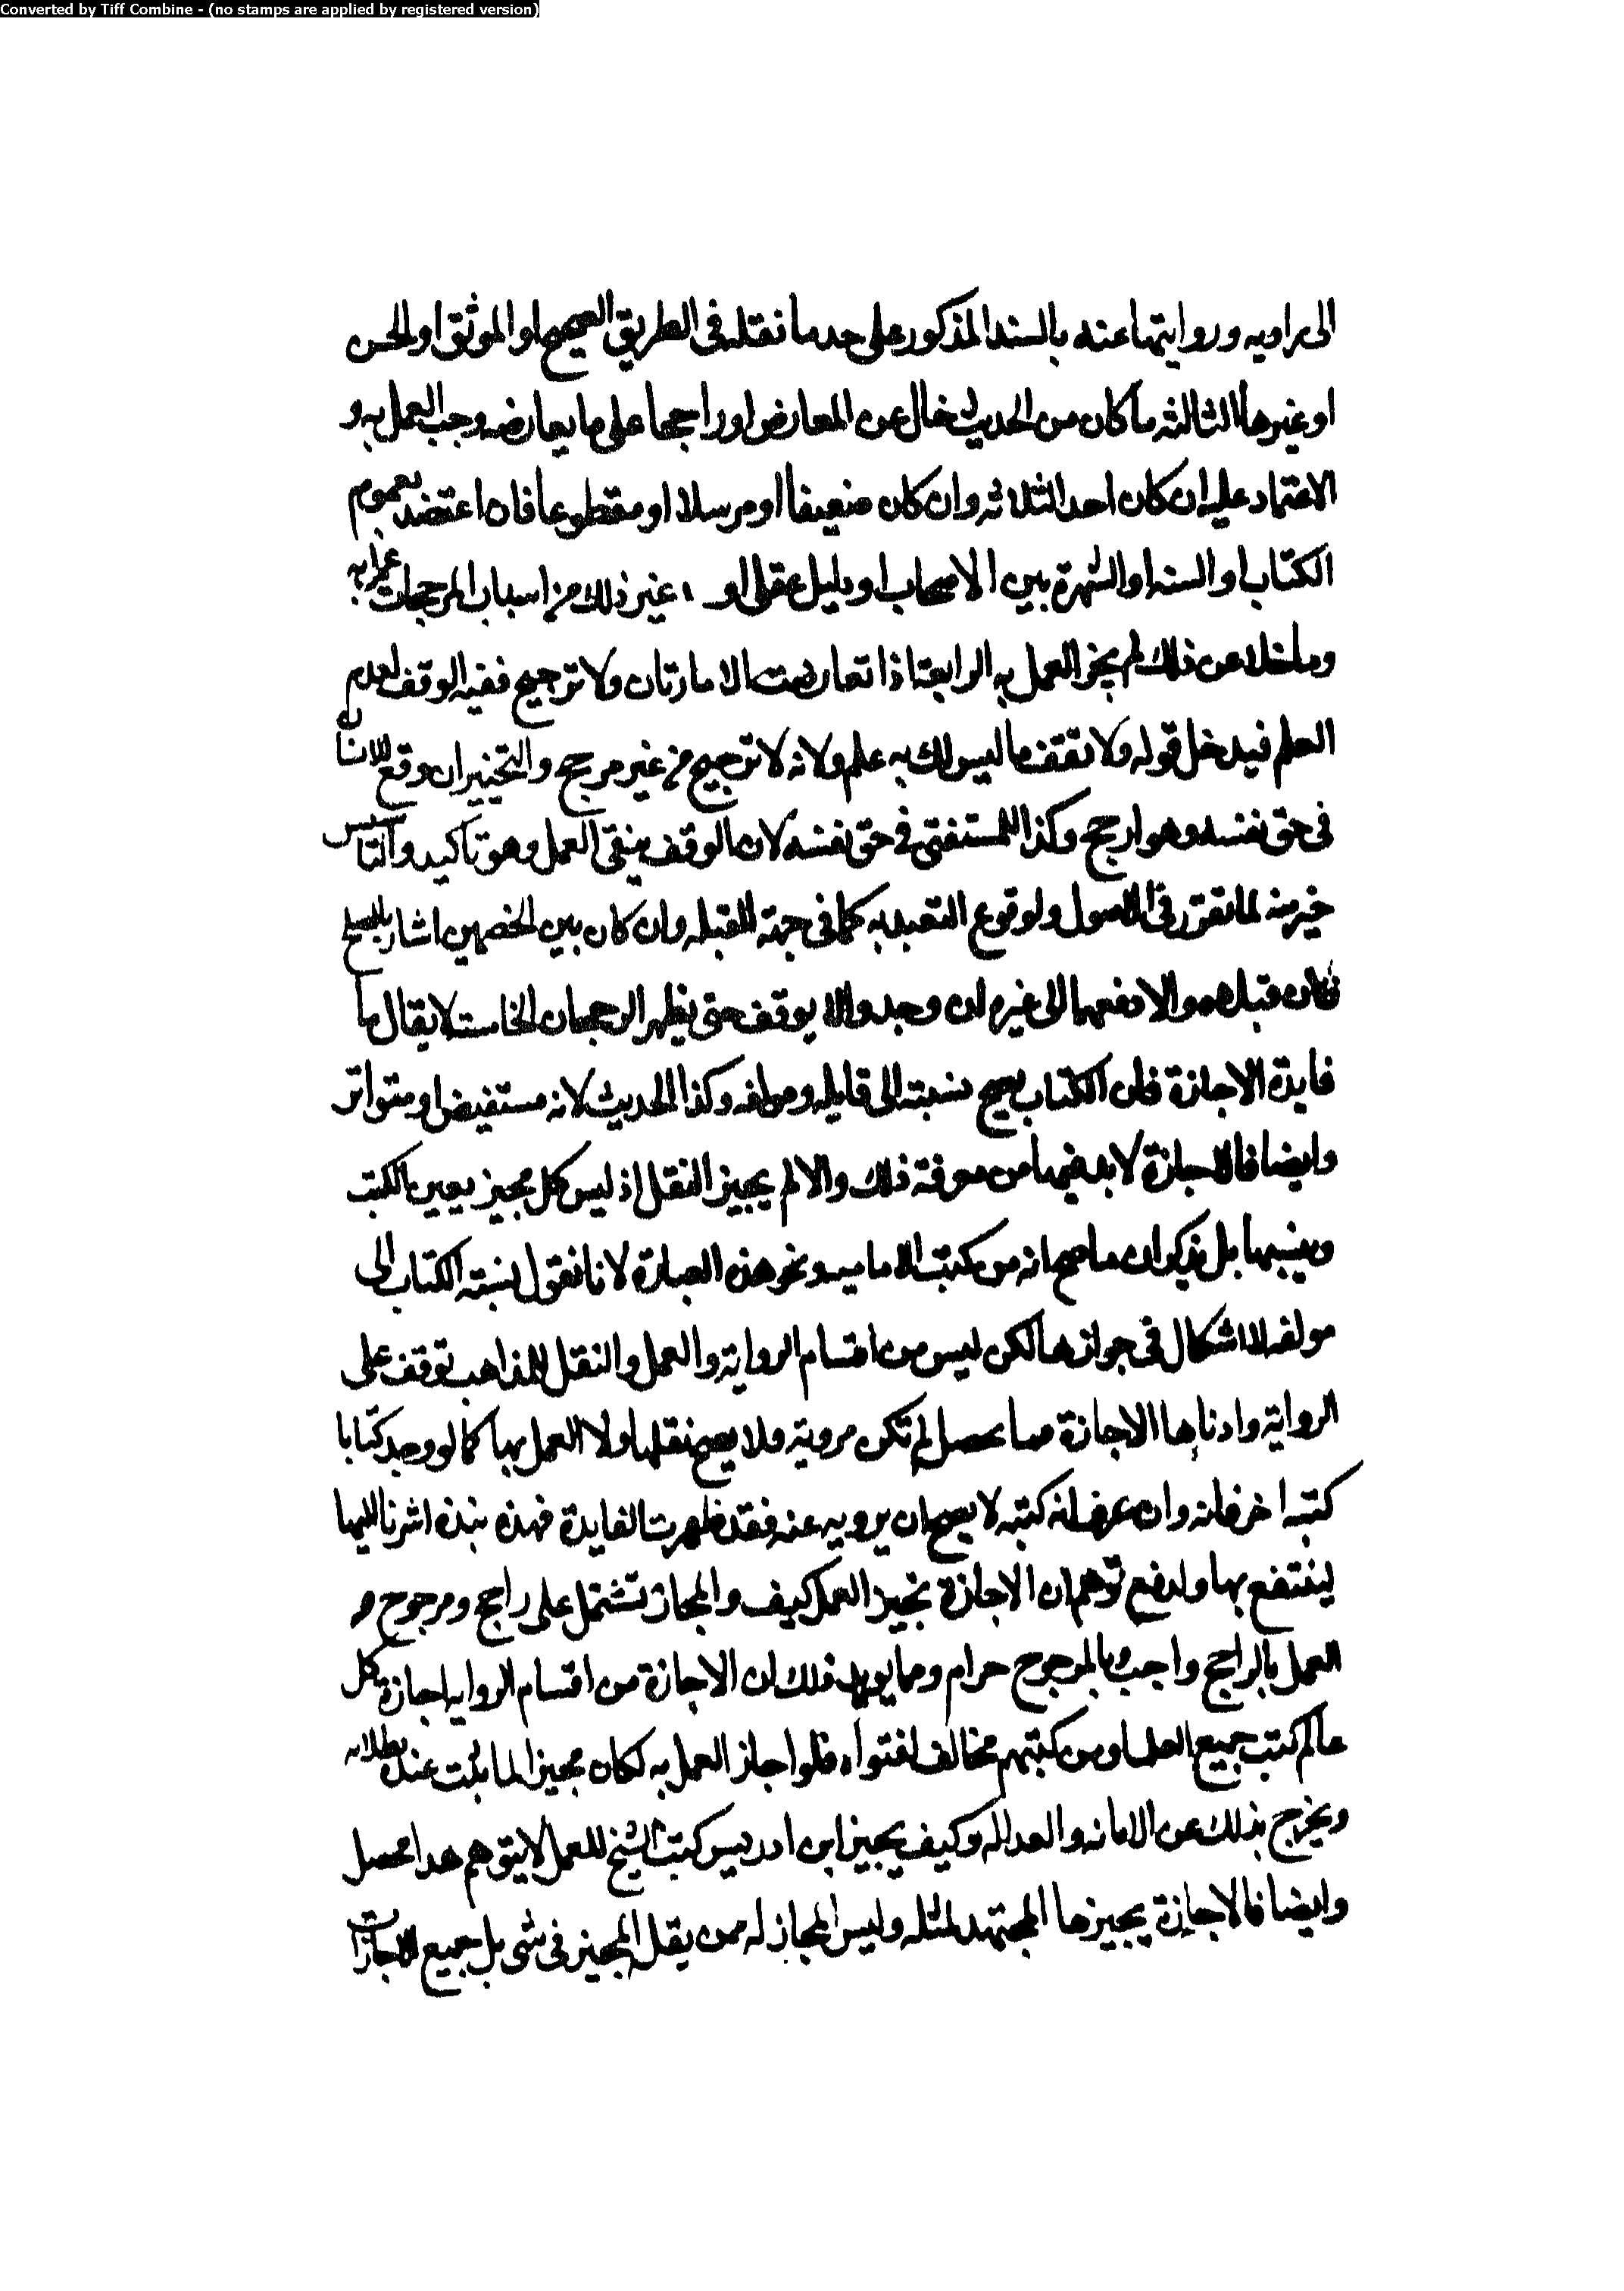 Converted by Tiff Combine - (no stamps are applied by registered version)
الى راويه وروايتها عنه بالسند المذكور على حد ما نقله فى الطريق الصحيح او الموثق او الحسن
او غيرها الثالثه ما كان من الحديث خال عن المعارض او راجحا على ما يعارضه وجب العمل به و
الاعتماد عليه ان كان احد الثلاثه وان كان ضعيفا او مرسلا او مقطوعا فان اعتضد بعموم
الكتاب او السنه او الشهرة بين الاصحاب او دليل عقلى او غير ذلك من اسباب المرجحات عمل به
وما خلا عن ذلك لم يجز العمل به الرابعة اذا تعارضت الامارتان ولا ترجيح ففيه الوقف لعدم
العلم فيدخل قوله ولا تقف ما ليس لك به علم ولانه لا ترجيح من غير مرجح والتخيير ان وقع للانسان
فى حق نفسه وهو ارجح وكذا المستفتى فى حق نفسه لان الوقف ينفى العمل وهو تاكيد والتاسيس
خير منه لما تقرر فى الاصول ولوقوع التعبد به كما فى جهة القبله وان كان بين الخصمين اشار بالصلح
فان قبلاه والا دفعهما الى غيره ان وجد والا يوقف حتى يظهر الرجحان الخامسة لا يقال ما
فايدة الاجازة فان الكتاب يصح نسبته الى قايله ومولفه وكذا الحديث لانه مستفيض او متواتر
وايضا فالاجازة لا بد فيها من معرفة ذلك والا لم يجيز النقل اذ ليس كل مجيز يعين الكتب
وينسبها بل يذكر ان ما صح انه من كتب الاماميه ونحو هذه العبارة لانا نقول نسبته الكتاب الى
مولفه لا اشكال فى جوازها لكن ليس من اقسام الرواية والعمل والنقل للمذاهب توقف على
الرواية وادناها الاجازة فما تحصل لم تكن مروية فلا يصح نقلها ولا العمل بها كما لو وجد كتابا
كتبه اخر فانه وان عرف انه كتبه لا يصح ان يرويه عنه فقد ظهرت الفايدة فهذه نبذه اشرنا اليها
لينتفع بها ولدفع توهم ان الاجازة تجيز العمل كيف والمجاز تشتمل على راجح ومرجوح و
العمل بالراجح واجب وبالمرجوح حرام ومما يويد ذلك ان الاجازة من اقسام الروايه اجازة كل
عالم كتب جميع العلما ومن كتبهم مخالف لفتواه فلو اجاز العمل به لكان مجيزا لما يثبت عنده بطلانه
ويخرج بذلك عن الامانه والعداله وكيف يجيز ابن ادريس كتب الشيخ للعمل لا يتوهم هذا محصل
وايضا فالاجازة يجيزها المجتهد لمثله وليس المجاز له ممن يقلد المجيز فى شى بل جميع الاجازات